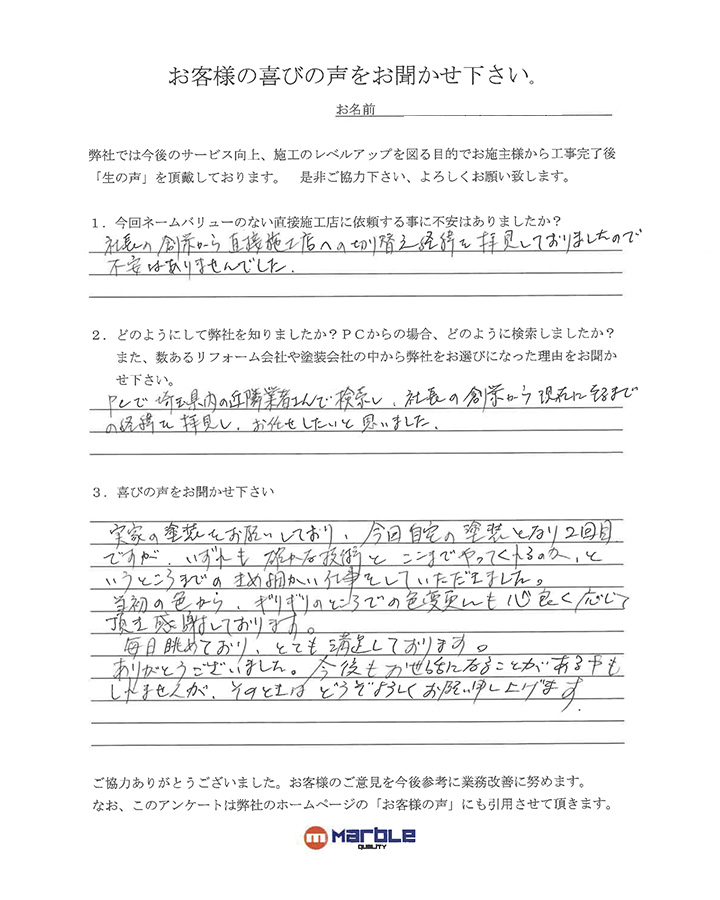 お客様の喜びの声をお聞かせ下さい。
お名前
弊社では今後のサービス向上、施工のレベルアップを図る目的でお施主様から工事完了後
「生の声」を頂戴しております。 是非ご協力下さい、よろしくお願い致します。
1．今回ネームバリューのない直接施工店に依頼する事に不安はありましたか？
社長の創業から直接施工店への切り替え経緯を拝見しておりましたので
不安はありませんでした．
2．どのようにして弊社を知りましたか？ＰＣからの場合、どのように検索しましたか？
また、数あるリフォーム会社や塗装会社の中から弊社をお選びになった理由をお聞か
せ下さい。
PCで埼玉県内の近隣業者さんで検索し、社長の創業から現在に至るまで
の経緯を拝見し、お任せしたいと思いました．
3．喜びの声をお聞かせ下さい
実家の塗装をお願いしており、今回自宅の塗装となり2回目
ですが、いずれも確かな技術とここまでやってくれるのか、と
いうところまでのきめ細かい仕事をしていただきました。
当初の色から、ギリギリのところでの色変更にも心良く応じて
頂き感謝しております。
毎日眺めており、とても満足しております。
ありがとうございました。今後もお世話になることがあるかも
しれませんが、そのときはどうぞよろしくお願い申し上げます．
ご協力ありがとうございました。お客様のご意見を今後参考に業務改善に努めます。
なお、このアンケートは弊社のホームページの「お客様の声」にも引用させて頂きます。
m MARBLE
QUALITY